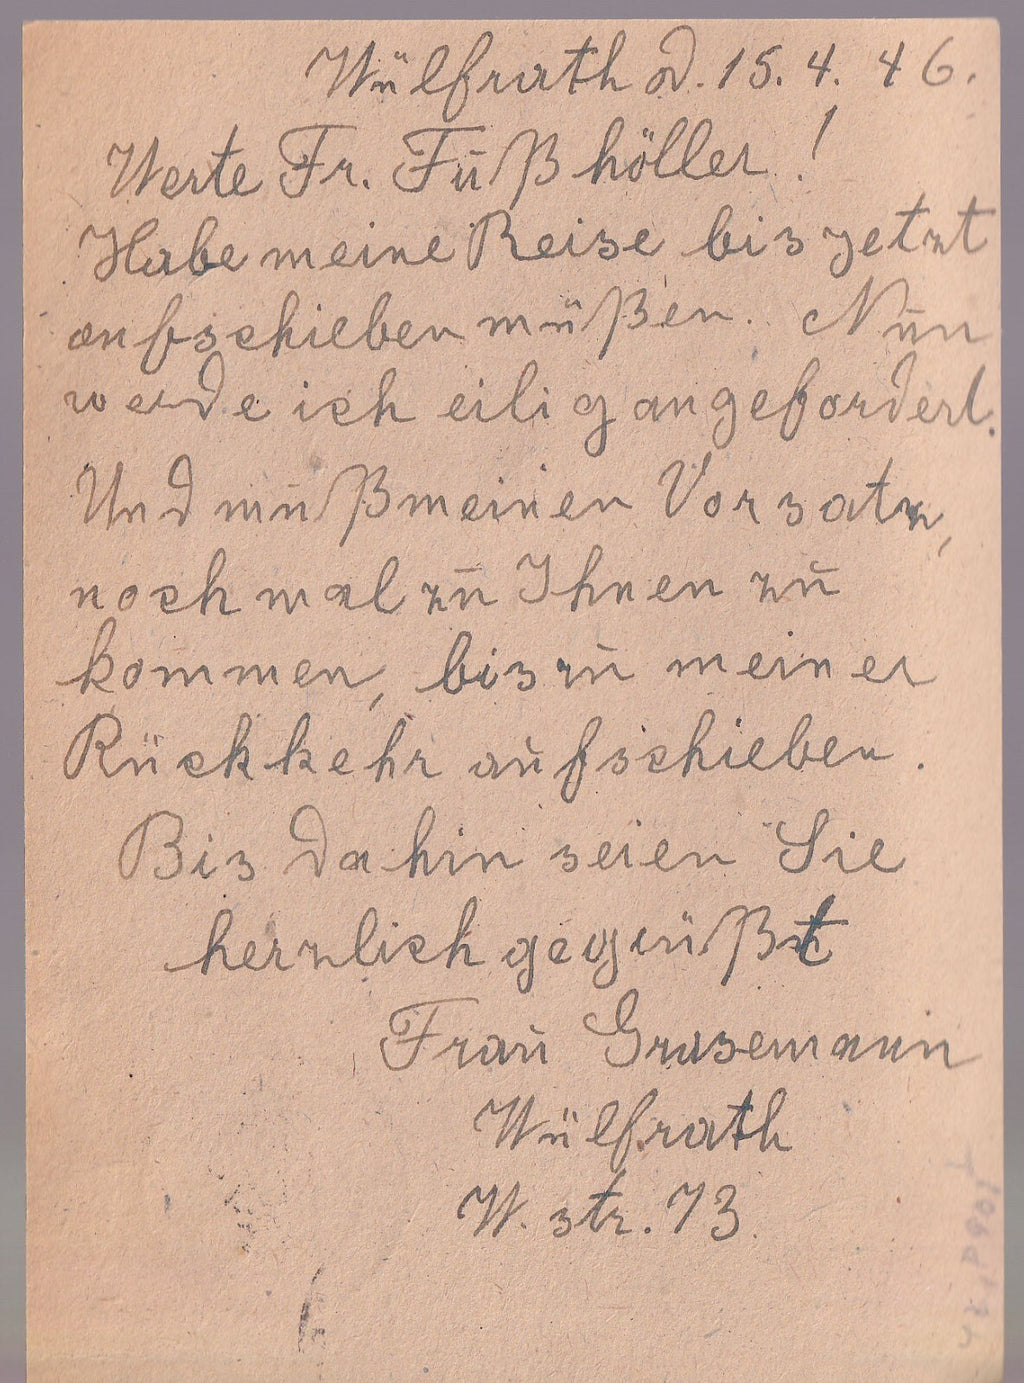 Wülfrath d. 15. 4. 46.
Werte Fr. Fußhöller!
Habe meine Reise bis jetzt
aufschieben müßen. Nun
werde ich eilig angefordert.
Und muß meinen Vorsatz,
noch mal zu Ihnen zu
kommen, bis zu meiner
Rückkehr aufschieben.
Bis dahin seien Sie
herzlich gegrüßt
Frau Grasemann
Wülfrath
W. str. 73